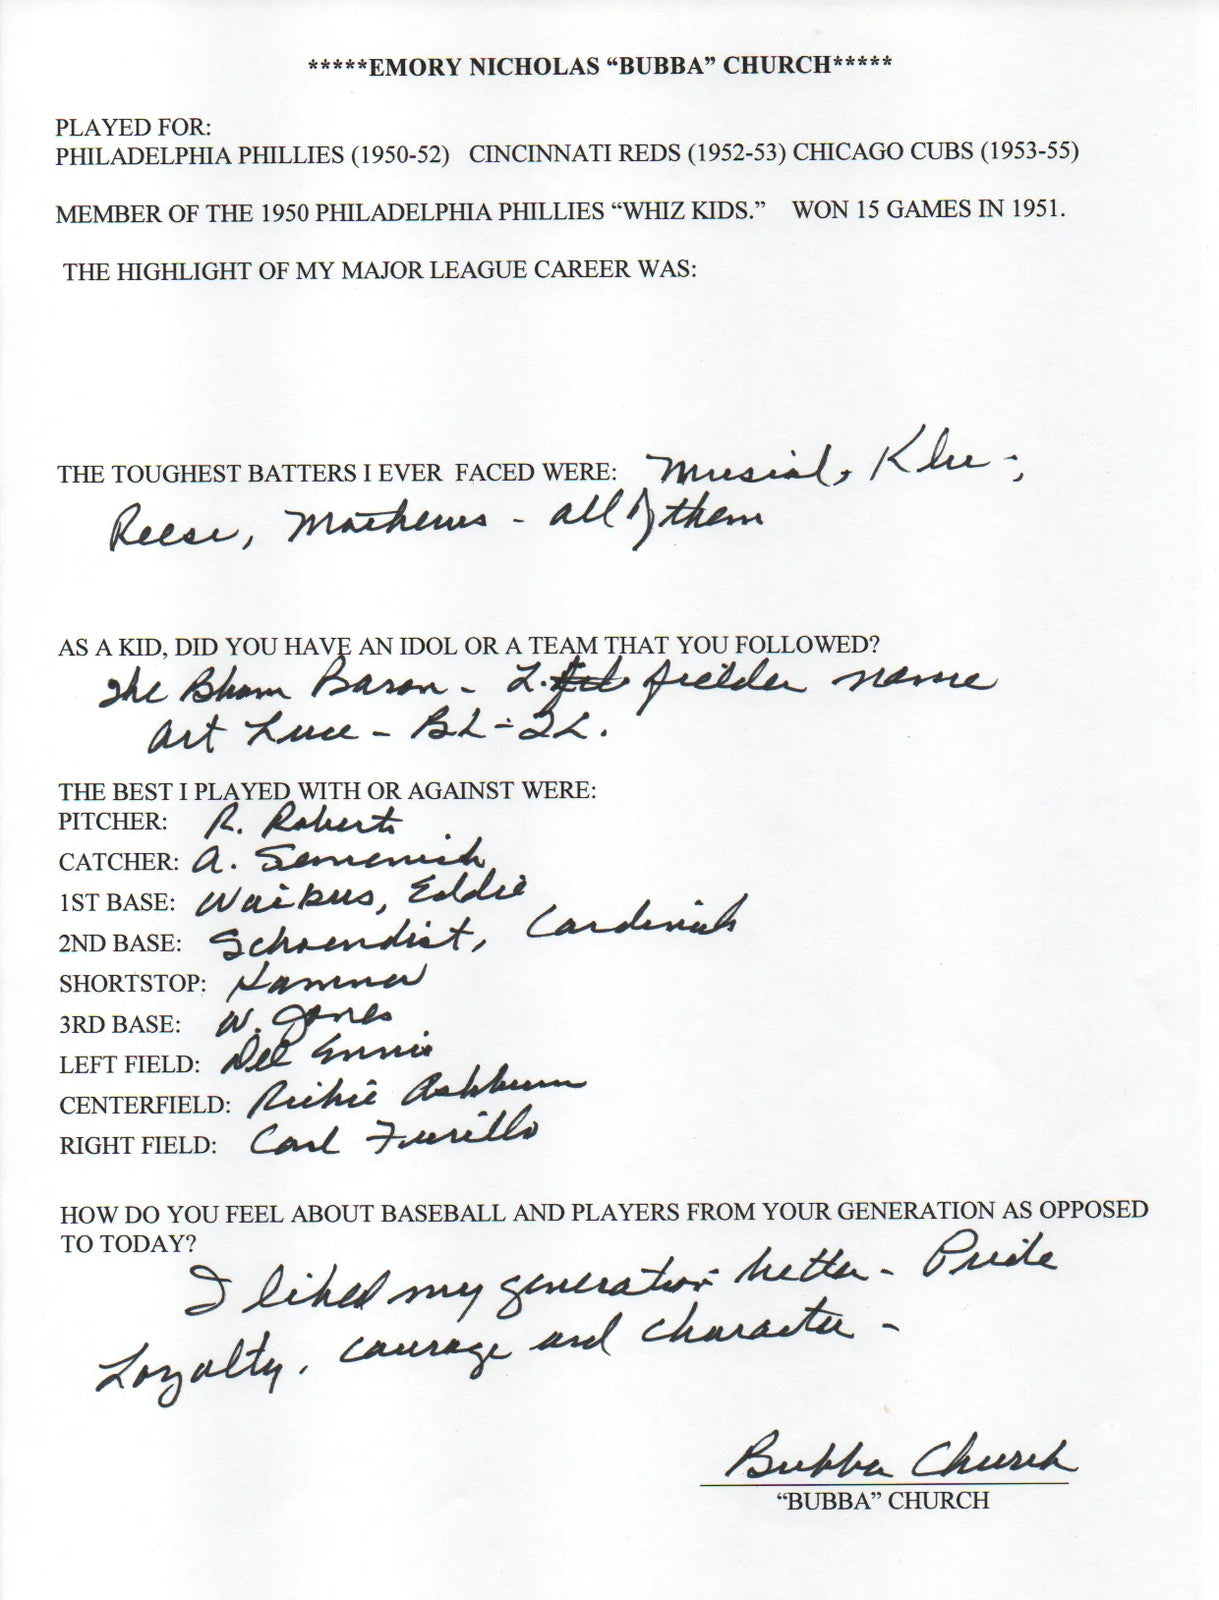 *****EMORY NICHOLAS “BUBBA” CHURCH*****
PLAYED FOR:
PHILADELPHIA PHILLIES (1950-52) CINCINNATI REDS (1952-53) CHICAGO CUBS (1953-55)
MEMBER OF THE 1950 PHILADELPHIA PHILLIES “WHIZ KIDS.” WON 15 GAMES IN 1951.
THE HIGHLIGHT OF MY MAJOR LEAGUE CAREER WAS:
THE TOUGHEST BATTERS I EVER FACED WERE: Musial, Klu -,
Reese, Mathews - all of them
AS A KID, DID YOU HAVE AN IDOL OR A TEAM THAT YOU FOLLOWED?
The Bham Baron - L. fielder name
Art Luce - BL -
THE BEST I PLAYED WITH OR AGAINST WERE:
PITCHER: R. Roberts
CATCHER: A. Semenick
1ST BASE: Waitkus, Eddie
2ND BASE: Schoendist, Cardinals
SHORTSTOP: Hamner
3RD BASE: W. Jones
LEFT FIELD: Del Ennis
CENTERFIELD: Richie Ashburn
RIGHT FIELD: Carl Furillo
HOW DO YOU FEEL ABOUT BASEBALL AND PLAYERS FROM YOUR GENERATION AS OPPOSED
TO TODAY?
I liked my generation better - Pride
Loyalty, courage and character -
Bubba Church
“BUBBA” CHURCH